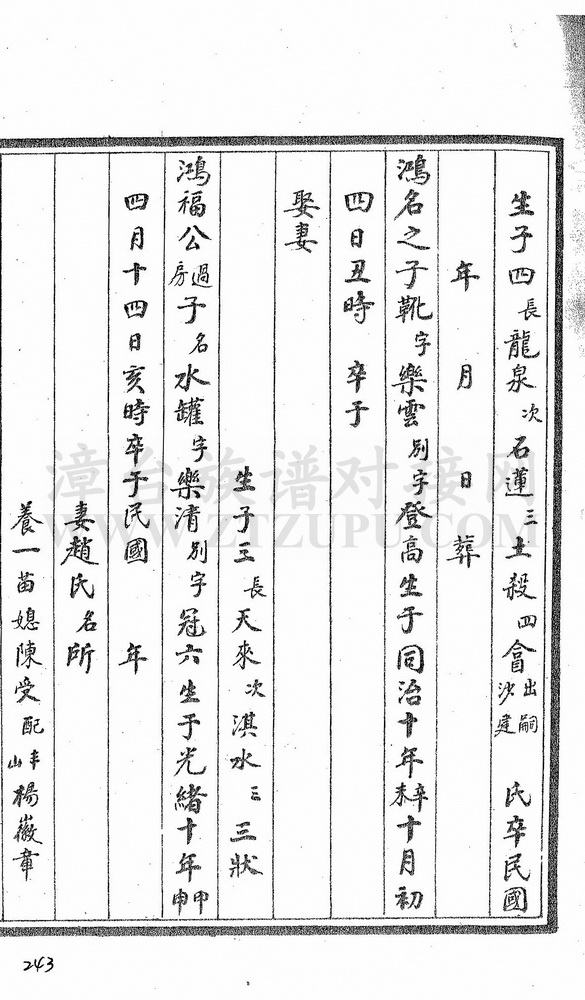 生子四長龍泉次石蓮三土殺四會出嗣沙建 氏卒民國
年 月 日 葬
鴻名之子靴字樂雲別字登高生于同治十年辛未十月初
四日丑時 卒于
娶妻
生子三長天來次淇水三三狀
鴻福公過房子名水罐字樂清別字冠六生于光緒十年甲申
四月十四日亥時卒于民國 年
妻趙氏名所
養一苗媳陳受配丰山楊徽章
漳台族谱对接网
WWW.ZTZUPU.COM
243